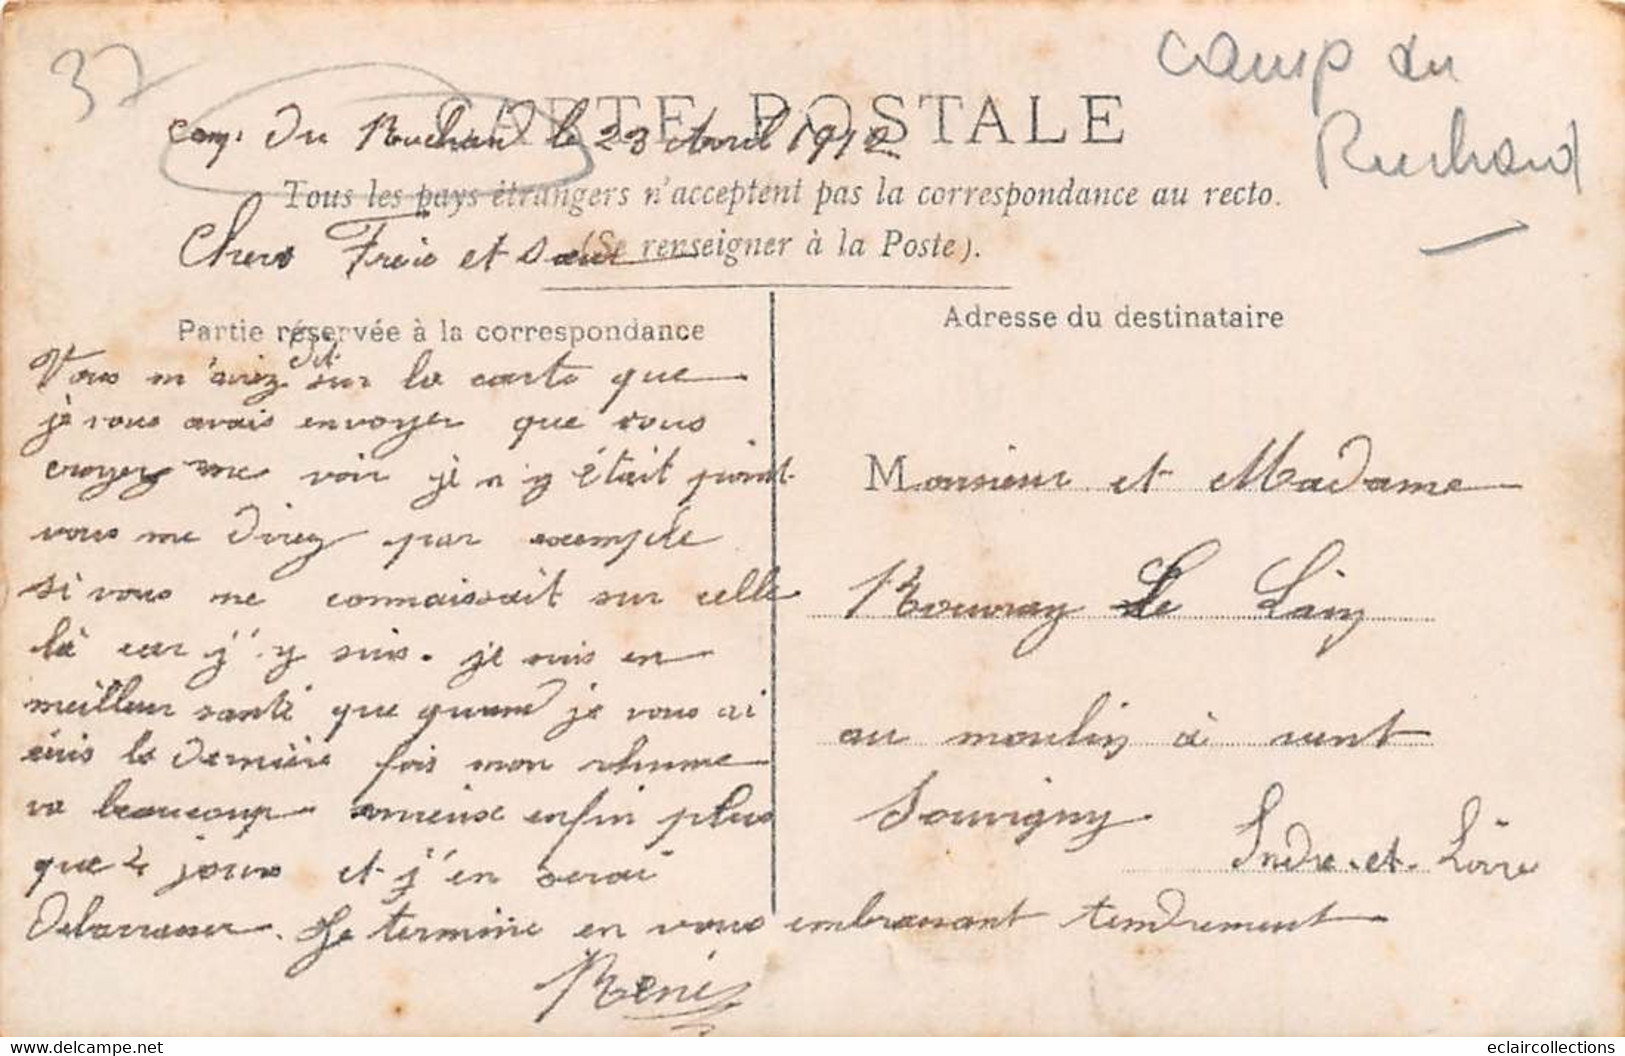 37
Camp du
Ruchard
CARTE POSTALE
Camp du Ruchard le 23 Avril 1912
Tous les pays étrangers n'acceptent pas la correspondance au recto.
(Se renseigner à la Poste).
Chers Frère et sœur
Partie réservée à la correspondance
Adresse du destinataire
dit
Vous m'aviez sur la carte que
je vous avais envoyer que vous
croyez me voir je n'y était point
vous me direz par exemple
si vous me connaissait sur celle
là car j'y suis. je suis en
meilleur santé que quand je vous ai
écris la dernière fois mon rhume
va beaucoup mieux enfin plus
que 4 jours et j'en serai
debarrasser. Je termine en vous embrassant tendrement
René
Monsieur et Madame
Rouvray Le
au moulin à vent
Souvigny
Indre-et-Loire
eclaircollections
https://www.delcampe.net